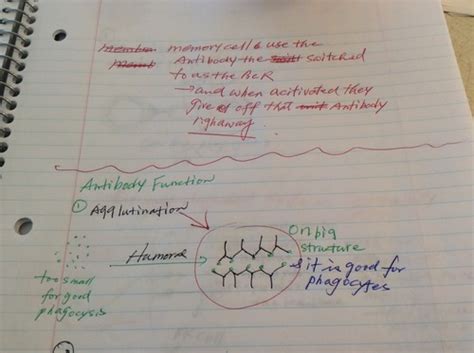 Membra memory cells use the
Memb Antibody the switched
to as the BCR
→ and when acitivated they
give off that Antibody
righaway
Antibody Function
① Agglutination
On big
structure
Humoral
& it is good for
phagocytes
too small
for good
phagocysis